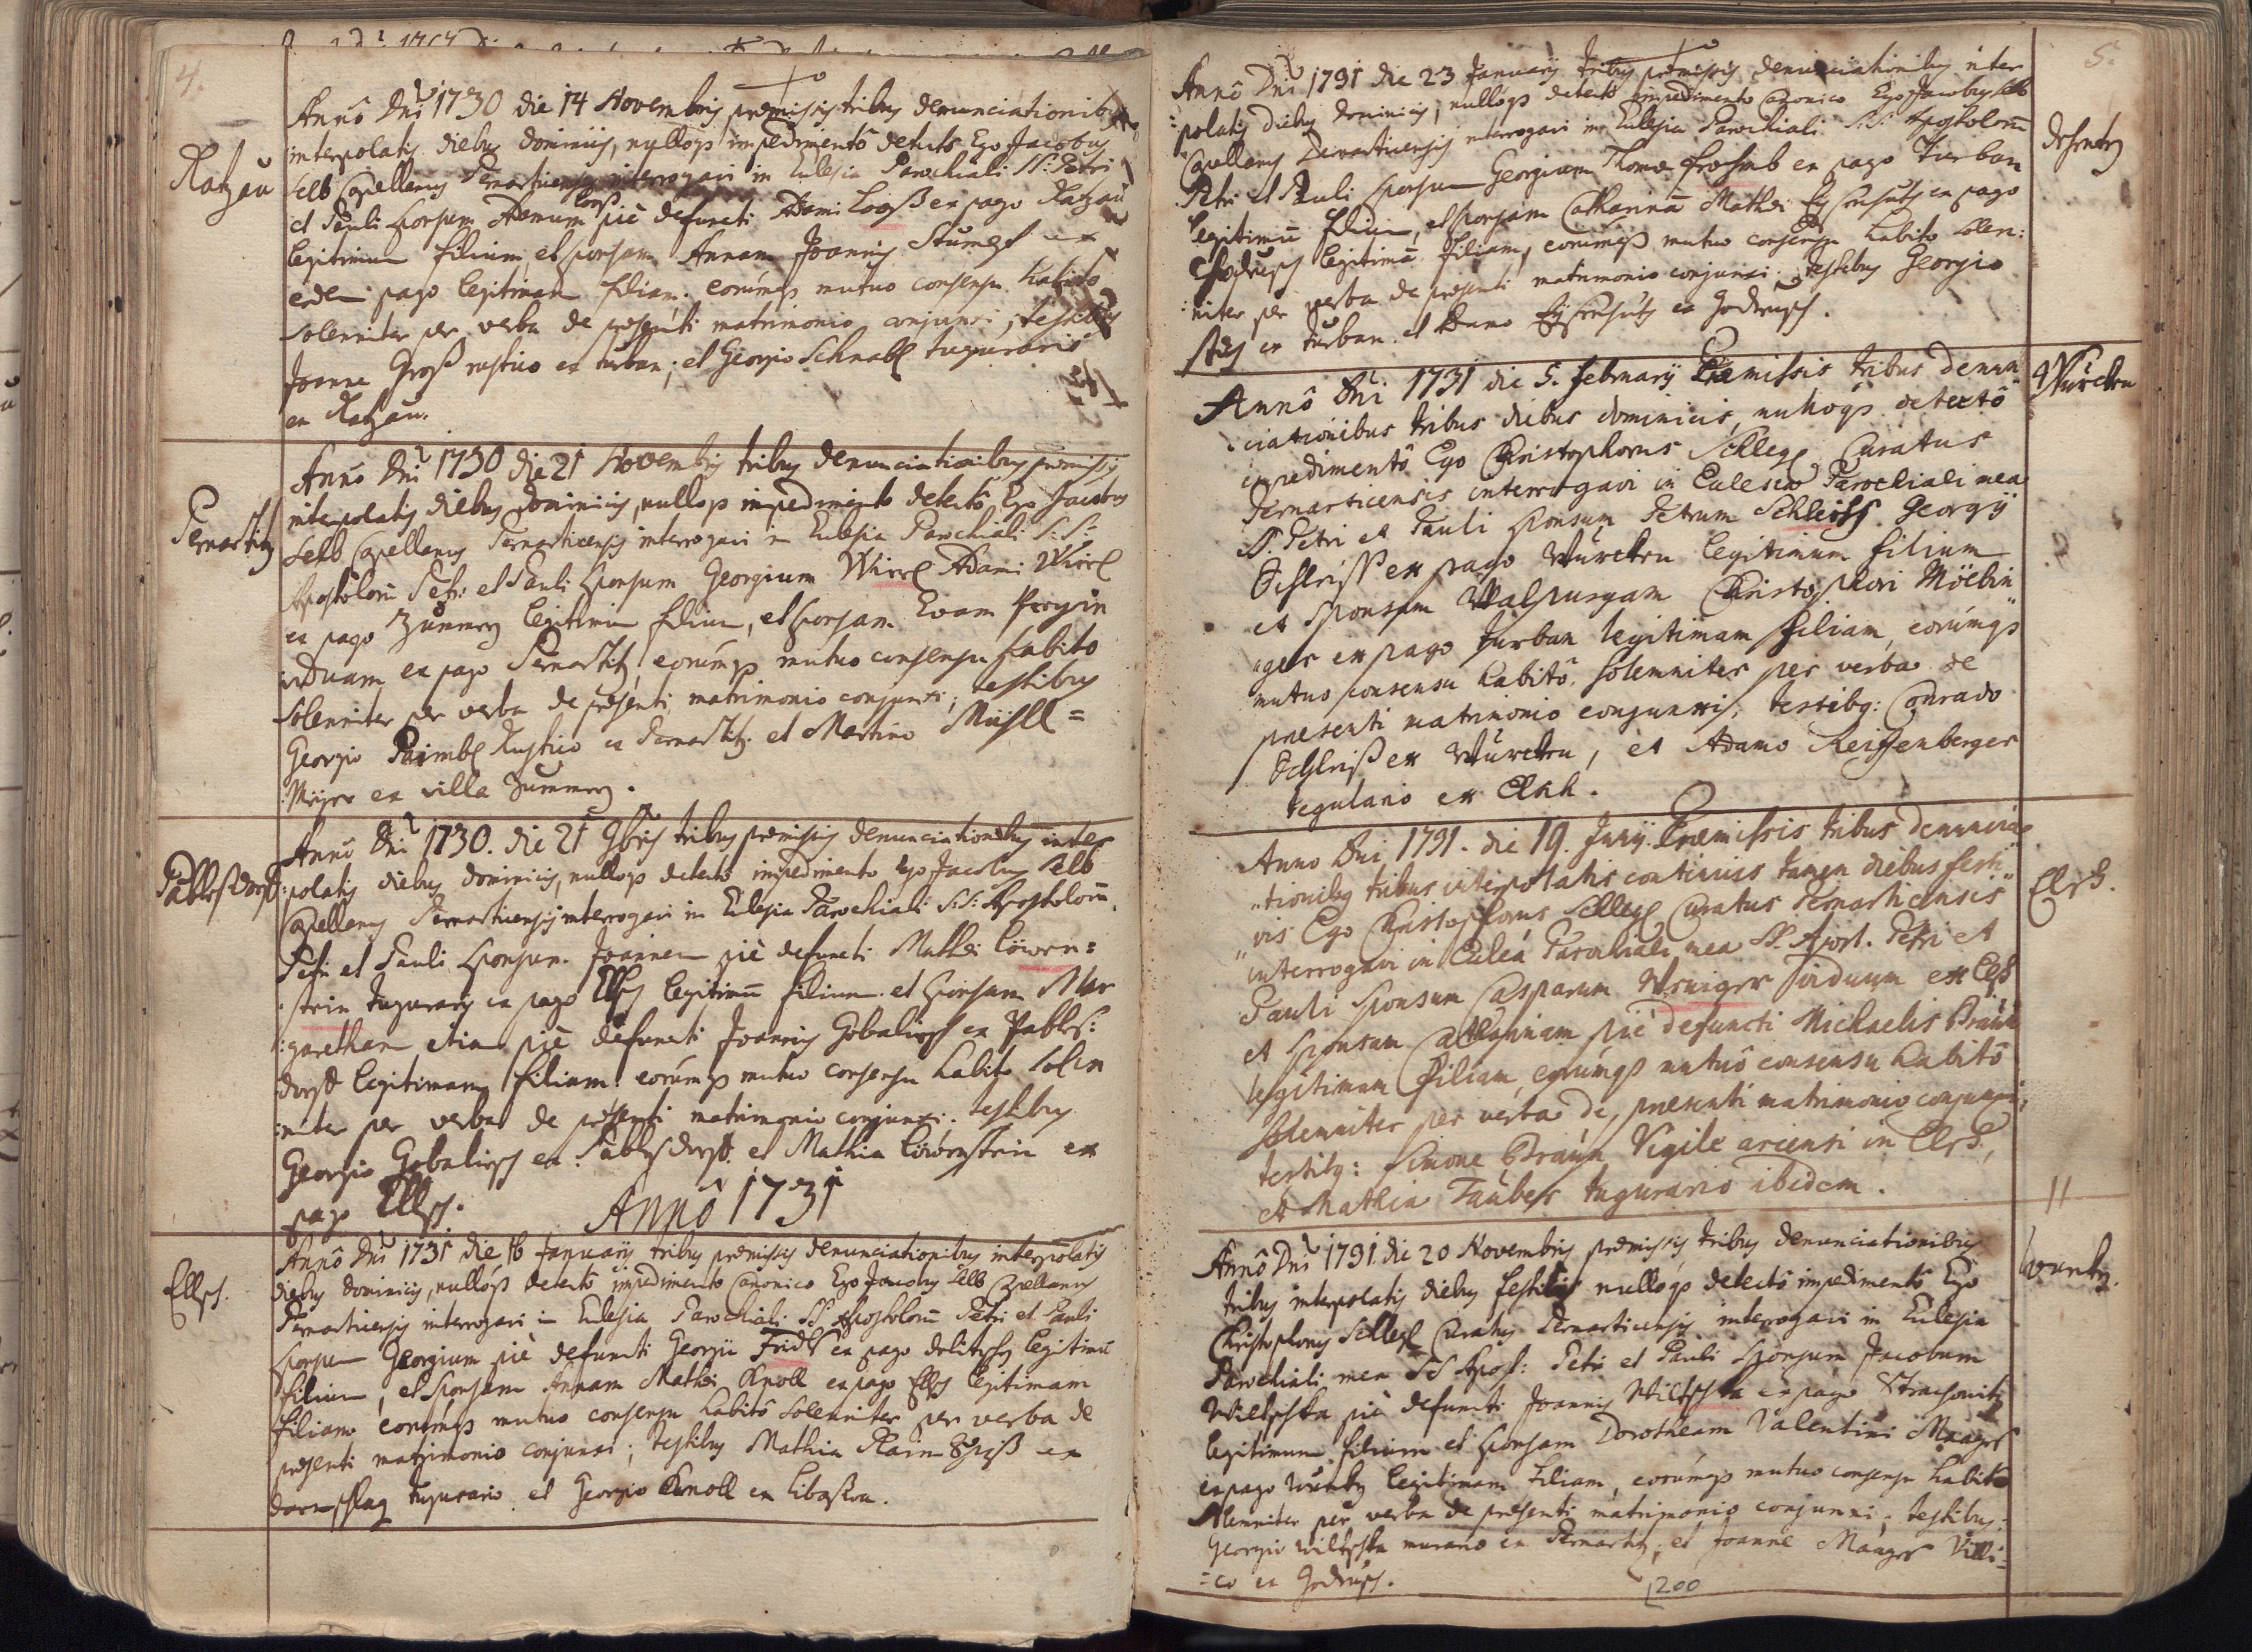 4.
Katzau
Annô Dni 1730 die 14 Novembris præmissis tribus denunciationibus
interpolatis diebus dominicis, nullôq3 impedimentô detectô Ego Jacobus
Selb Capellanus Pernarticensis interrogavi in Eclesia Parochiali SS. Petri
et Pauli Sponsum Adamum piè defuncti Adami Looß ex pago Katzau
legitimum filium, et sponsam Annam Joannis Stumpf ex
eodem pago legitimam filiam. eorúmq3 mutuo consensu habito
solenniter per verba de præsenti matrimonio conjunxi; testibus
Joanne Groß rustico ex turban; et Georgio Schnabl tugurario
ex Katzau.
Pernartitz
Annô Dni 1730 die 21 Novembris tribus denunciationibus præmissis
interpolatis diebus Dominicis, nulloq3 impedimento detectô Ego Jacobus
Selb Capellanus Pernarticensis interrogavi in Eclesia Parochiali S:S:
Apostolorū Petri et Pauli Sponsum Georgium Wirrl Adami Wirrl
ex pago Zummern legitimum filium, et sponsam Evam
viduam ex pago Pernartitz, eorúmq3 mutuo consensu habito
solenniter per verba de præsenti matrimonio conjunxi, testibus
Georgio Paimbl Rustico ex Pernartitz. et Martino Mühll=
Mayer ex villa Zummern.
Pablsdorff
Annô Dni 1730. die 21 9bris tribus præmissis denunciationibus inter
polatis diebus dominicis, nulloq3 detectô impedimento Ego Jacobus Selb
Capellanus Pernarticensis interrogavi in Eclesia Parochiali S:S: Apostolorū
Petri et Pauli Sponsum Joannem piè defuncti Mathæi Löwen=
stein tugurarij ex pago Ellsch legitimū filium. et Sponsam Mar
garetham etiam piè defuncti Joannis Gobalirsch ex Pabls:
dorff legitimam filiam. eorúmq3 mutuo consensu habito solen
niter per verba de præsenti matrimonio conjunxi. testibus
Georgio Gobalirsch ex Pablsdorff. et Mathia Löwenstein ex
pago Ellsch.
Annô 1731
Ellsch.
Annô Dni 1731 die 16 January tribus præmissis denunciationibus interpolatis
diebus dominicis, nullóq3 detectô impedimento Canonico Ego Jacobus Selb Capellanus
Pernarticensis interrogavi in Eclesia Parochiali SS Apostolorū Petri et Pauli
Sponsum Georgium piè defuncti Georgii Fridl ex pago legitimū
filium, et Sponsam Annam Mathæi Knoll ex pago Ellsch legitimam
filiam eorúmq3 mutuo consensu habitô solenniter per verba de
præsenti matrimonio conjunxi; testibus Mathia ex
tugurario et Georgio Knoll ex
5.
Annô Dni 1731 die 23 January tribus præmissis denunciationibus inter
polatis diebus dominicis, nullóq3 detectô impedimento Canonico Ego Jacobus Selb
Capellanus Pernarticensis interrogavi in Eclesia Parochiali S:S: Apostolorū
Petri et Pauli Sponsum Georgium Thomæ ex pago Turban
legitimū filium, et sponsam Catharinā Mathæi ex pago
Godrusch legitimā filiam, eorúmq3 mutuo consensu habito solen:
niter per verba de præsenti matrimonio conjunxi. testibus Georgio
ex turban. et Adamo ex Godrusch.
Wurcken
Annô Dni 1731 die 5. february Præmissis tribus denun
ciationibus tribus diebus dominicis, nullóq3 detectô
impedimentô Ego Christophorus Schlegl Curatus
Pernarticensis interrogavi in Eclesia Parochiali mea
SS. Petri et Pauli Sponsum Petrum Schleiss Georgÿ
Schleiss ex pago Wurcken legitimum filium
et sponsam Walpurgam Christophori
ex pago Turban legitimam filiam, eorúmq3
mutuo consensu habitô, solemniter per verba de
præsenti matrimonio conjunxi; testibq: Conrado
Schleiß ex Wurcken, et Adamo Reissenberger
tegulario ex
Elsch.
Anno Dni 1731. die 19. Juny. Præmissis tribus denuncia
tionibq tribus interpolatis continuis tamen diebus festi
vis Ego Christophorus Schlegl Curatus Pernarticensis
interrogavi in Eclea Parochiali mea SS. Apost. Petri et
Pauli Sponsum Casparum Weniger viduum ex
et sponsam Catharinam piè defuncti Michaelis Braun
legitimam filiam, eorúmq3 mutuô consensu habitô
solemniter per verba de præsenti matrimonio conjunxi;
testibq: Simone Braun Vigile arcensi in Elsch,
et Mathia Tauber tugurario ibidem.
Annô Dni 1731 die 20 Novembris præmissis tribus denunciationibus
tribus interpolatis diebus festivis nullóq3 detectô impedimentô Ego
Christophorus Schlegl Curatus Pernarticensis interrogavi in Eclesia
Parochiali mea SS Apost: Petri et Pauli Sponsum Jacobum
Wiltschka piè defuncti Joannis Wiltschka ex pago Strachowitz
legitimum filium et sponsam Dorotheam Valentini Maager
ex pago legitimam filiam, eorúmq3 mutuo consensu habitô
solemniter per verba de præsenti matrimonio conjunxi; testibus:
Georgio Wiltschka murario ex Pernartitz, et Joanne Maager Villi=
=co ex Godrusch.
200